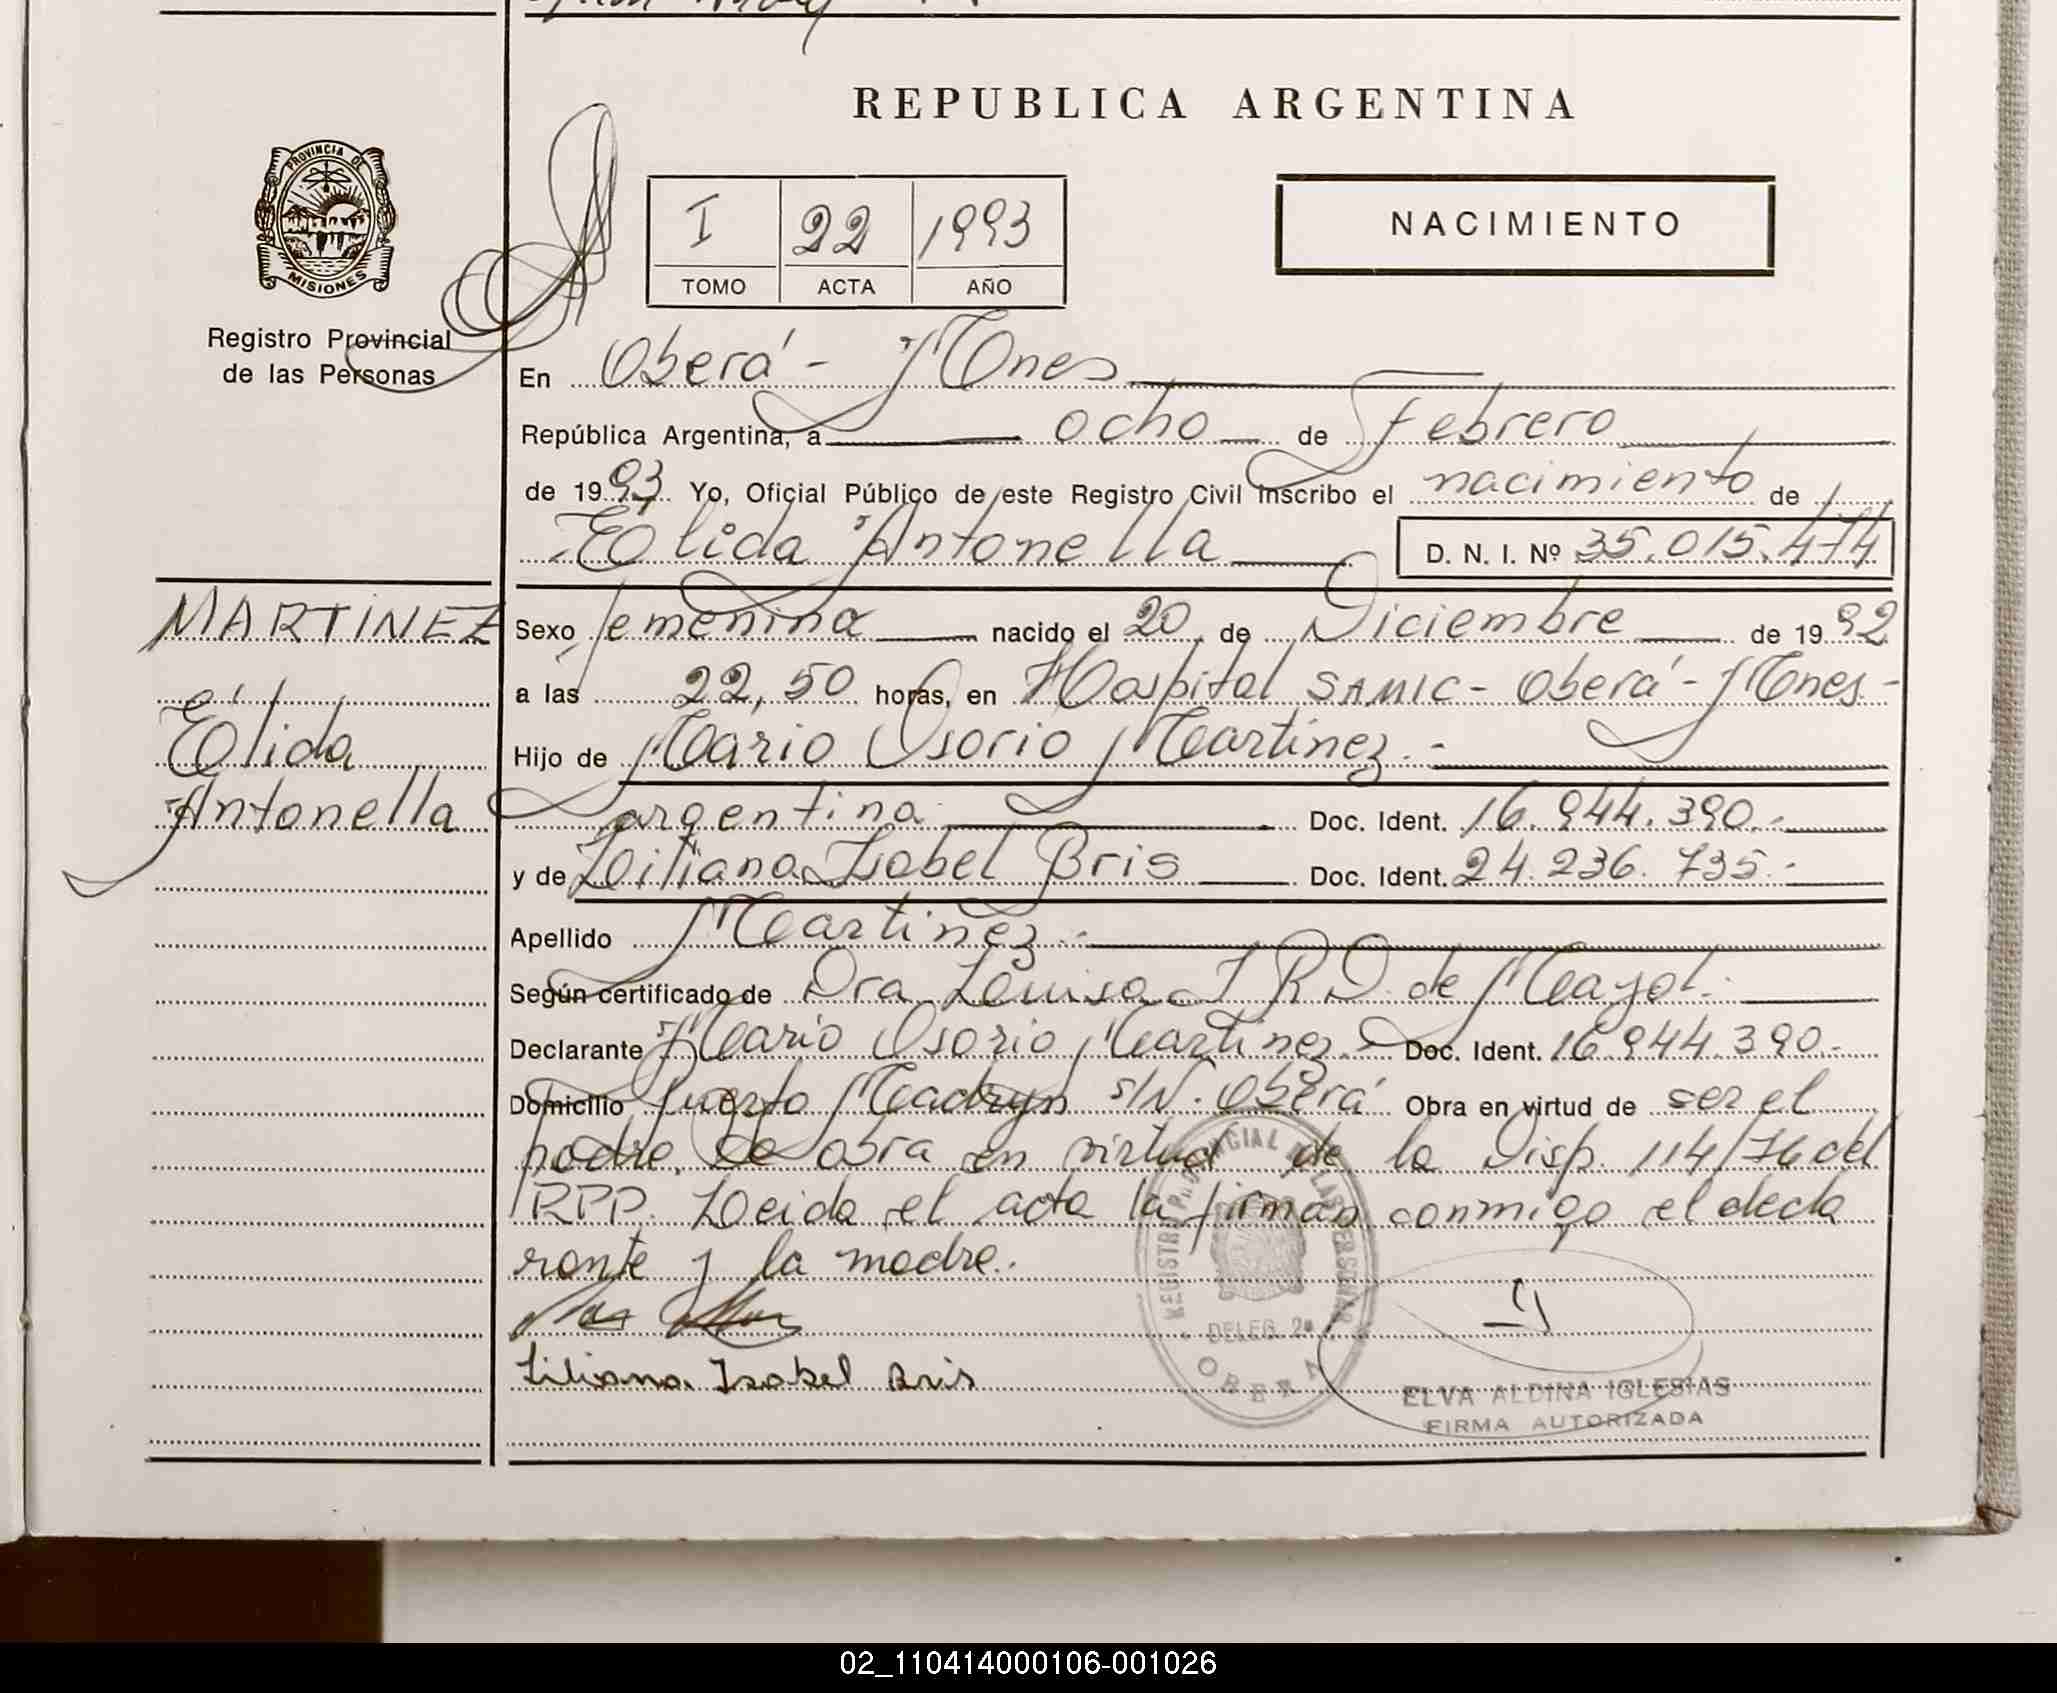 REPUBLICA ARGENTINA
PROVINCIA DE
MISIONES
Registro Provincial
de las Personas
I 22 1993
TOMO ACTA AÑO
NACIMIENTO
En Oberá - Mnes
República Argentina, a ocho de Febrero
de 1993 Yo, Oficial Público de este Registro Civil inscribo el nacimiento de
Élida Antonella D. N. I. Nº 35.015.474
MARTINEZ
Élida
Antonella
Sexo femenina nacido el 20 de Diciembre de 1992
a las 22,50 horas, en Hospital SAMIC - Oberá - Mnes -
Hijo de Mario Osorio Martinez.-
argentina Doc. Ident. 16.944.390.-
y de Liliana Isabel Bris Doc. Ident. 24.236.735.-
Apellido Martinez.-
Según certificado de Dra. Louisa I R D. de Mayol.-
Declarante Mario Osorio Martinez.- Doc. Ident. 16.944.390.-
Domicilio Puerto Madryn s/N. Oberá Obra en virtud de ser el
padre. Se obra en virtud de la Disp. 114/76 del
RPP. Leida el acta la firman conmigo el decla
rante y la madre.
Liliana Isabel Bris
REGISTRO PROVINCIAL DE LAS PERSONAS
DELEG. 2a
OBERA
ELVA ALDINA IGLESIAS
FIRMA AUTORIZADA
02_110414000106-001026